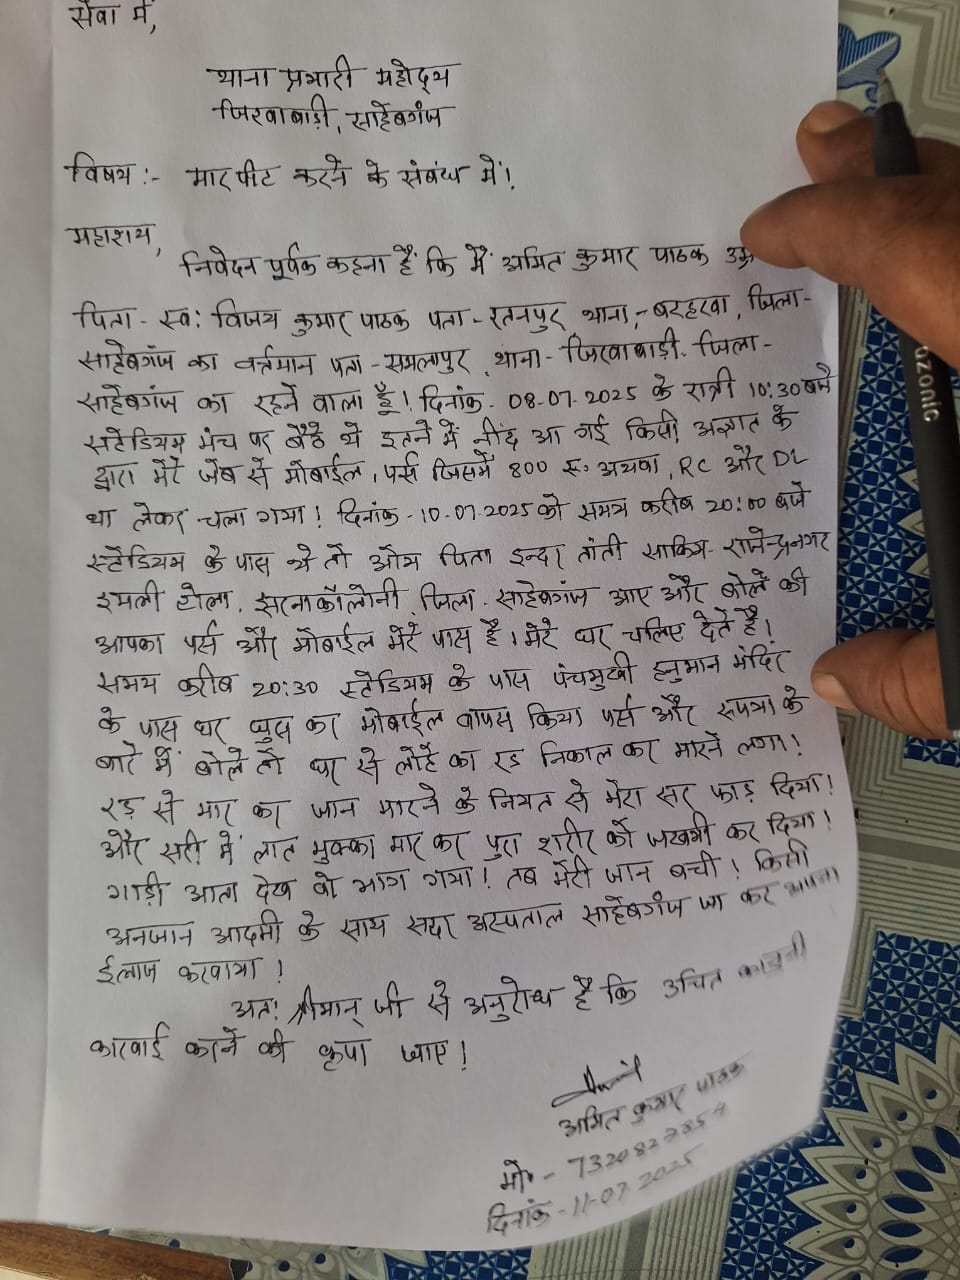 सेवा में,
थाना प्रभारी महोदय
जिरवाबाड़ी, साहेबगंज
विषय :- मारपीट करने के संबंध में।
महाशय,
निवेदन पूर्वक कहना है कि मैं अमित कुमार पाठक
पिता - स्व: विजय कुमार पाठक पता - रतनपुर थाना,- बरहरवा, जिला-
साहेबगंज का वर्त्तमान पता - समलापुर, थाना - जिरवाबाड़ी. जिला -
साहेबगंज का रहने वाला हूँ। दिनांक - 08-07-2025 के रात्री 10:30 बजे
स्टेडियम मंच पर बैठे थे इतने में नींद आ गई किसी अज्ञात के
द्वारा मेरे जेब से मोबाईल, पर्स जिसमें 800 रू. अथवा, RC और DL
था लेकर चला गया! दिनांक - 10.07.2025 को समय करीब 20:00 बजे
स्टेडियम के पास थे तो ओम पिता इन्दर तांती साकिन - राजेन्द्रनगर
इमली टोला, झरनाकॉलोनी, जिला - साहेबगंज आए और बोले की
आपका पर्स और मोबाईल मेरे पास है। मेरे घर चलिए देते है।
समय करीब 20:30 स्टेडियम के पास पंचमुखी हनुमान मंदिर
के पास घर घुस कर मोबाईल वापस किया पर्स और रूपया के
बारे में बोले तो घर से लोहे का रड निकाल कर मारने लगा!
रड़ से मार कर जान मारने के नियत से मेरा सर फाड़ दिया!
और सरी में लात मुक्का मार कर पुरा शरीर को जखमी कर दिया!
गाड़ी आता देख वो भाग गया! तब मेरी जान बची! किसी
अनजान आदमी के साथ सदर अस्पताल साहेबगंज जा कर अपना
ईलाज करवाया!
अत: श्रीमान् जी से अनुरोध है कि उचित कानूनी
कारवाई करने की कृपा जाए!
अमित कुमार पाठक
मो॰ - 7320827854
दिनांक - 11-07-2025
azonic